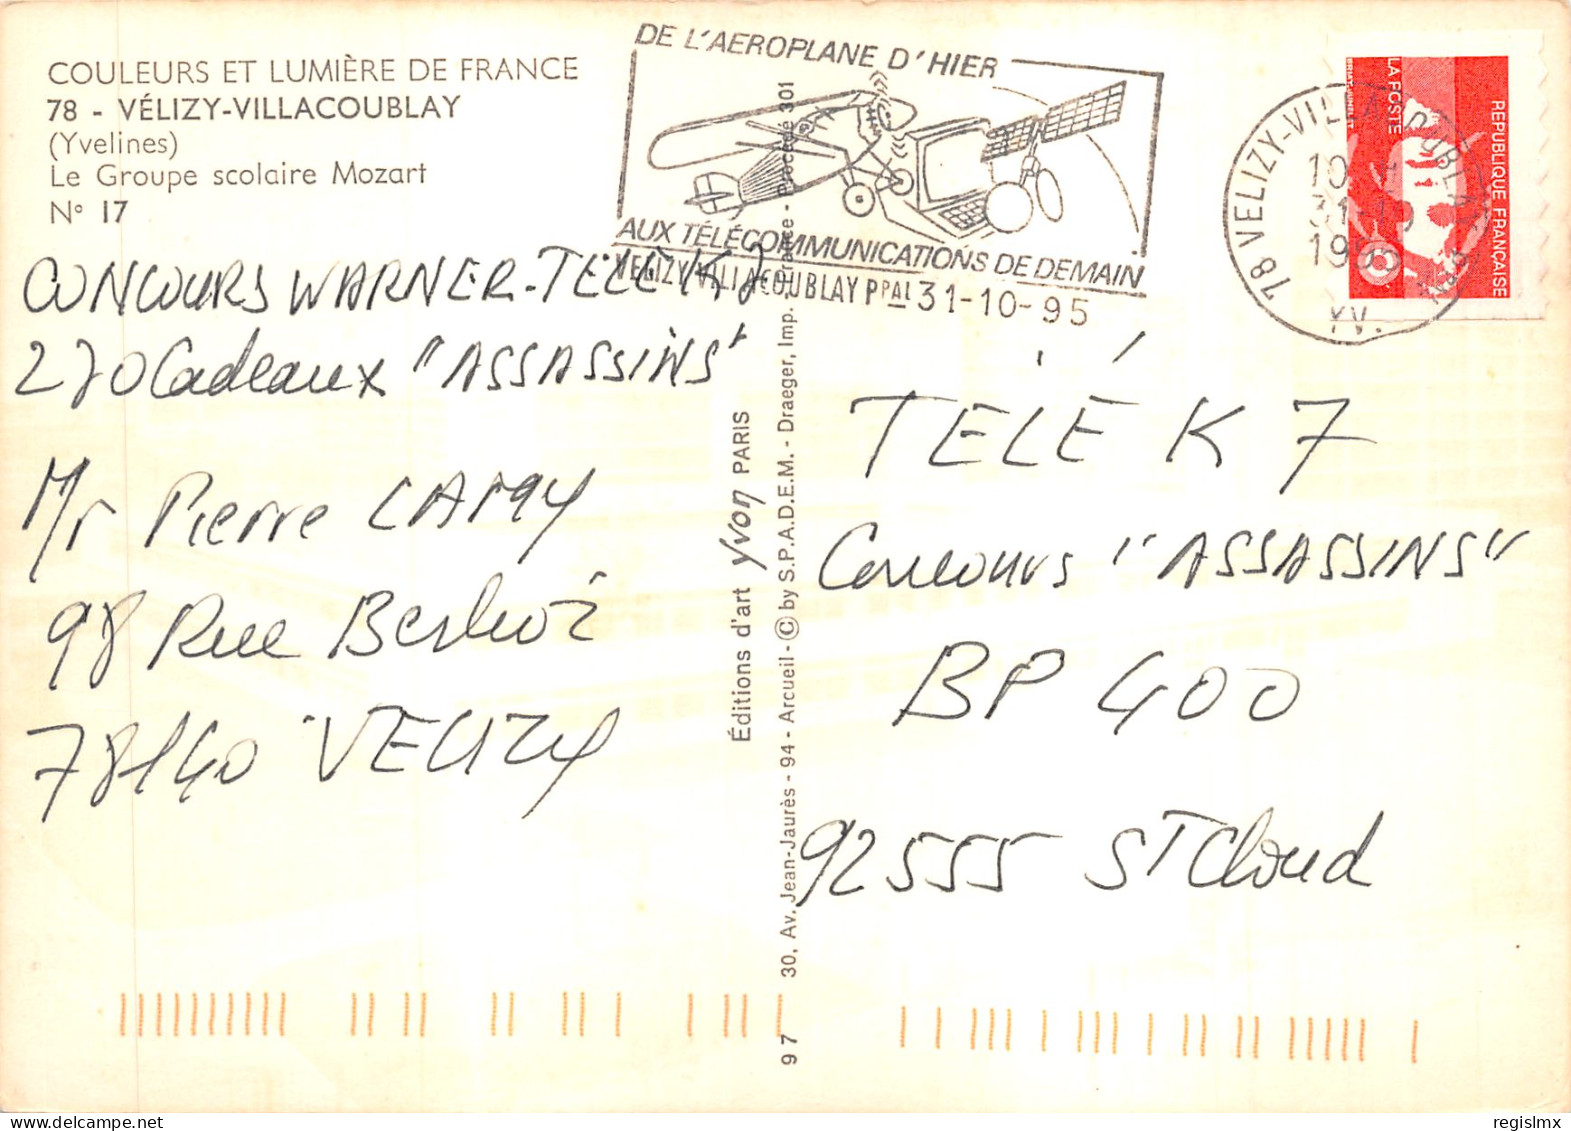 COULEURS ET LUMIÈRE DE FRANCE
78 - VÉLIZY-VILLACOUBLAY
(Yvelines)
Le Groupe scolaire Mozart
N° 17
CONCOURS WARNER-TÉLÉ K7
270 Cadeaux "ASSASSINS"
Mr Pierre LAMY
98 Rue Berlioz
78140 VELIZY
DE L'AEROPLANE D'HIER
AUX TÉLÉCOMMUNICATIONS DE DEMAIN
VELIZY VILLACOUBLAY PPAL 31-10-95
78 VELIZY-VILLACOUBLAY
31-10
1995
YV.
LA POSTE
REPUBLIQUE FRANÇAISE
Éditions d'art yvon PARIS
97 30, Av. Jean-Jaurès - 94 - Arcueil - © by S.P.A.D.E.M. - Draeger, Imp. France - Procédé 301
TÉLÉ K7
Concours "ASSASSINS"
BP 400
92555 ST Cloud
regislmx